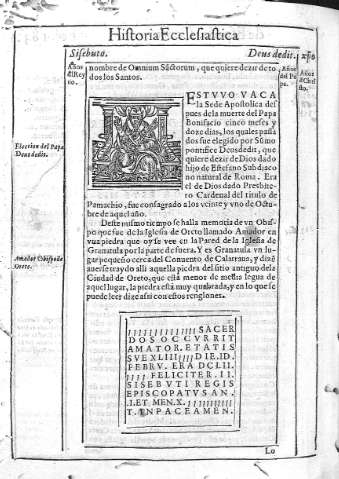 Historia Ecclesiastica
Sisebuto.
Deus dedit.
Años
del Rey
no.
Años
del Pa
pa.
Años
de Chri
sto.
nombre de Omnium Sāctorum, que quiere dezir de to
dos los Santos.
ESTVVO VACA
la Sede Apostolica des
pues de la muerte del Papa
Bonifacio cinco meses y
doze dias, los quales passa
dos fue elegido por Sūmo
pontifice Deusdedit, que
quiere dezir de Dios dado
hijo de Estefano Subdiaco
no natural de Roma. Era
el de Dios dado Presbite
ro Cardenal del titulo de
Pamachio, fue consagrado a los veinte y vno de Octu-
bre de aquel año.
Eleccion del Papa
Deusdedit.
Deste mismo tiempo se halla memoria de vn Obis-
po que fue de la Iglesia de Oreto llamado Amador en
vna piedra que oy se vee en la Pared de la Iglesia de
Granatula por la parte de fuera. Y es Granatula vn lu-
gar pequeño cerca del Conuento de Calatraua, y dizē
auerse traydo alli aquella piedra del sitio antiguo de la
Ciudad de Oreto, que está menor de media legua de
aquel lugar, la piedra está muy quebrada, y en lo que se
puede leer dize assi con estos renglones.
Amador Obispo de
Oreto.
SACER
DOS OCCVRRIT
AMATOR. ETATIS
SVE XLIII DIE. ID.
FEBRV. ERA DCLII.
FELICITER. II.
SISEBVTI REGIS
EPISCOPATVS AN.
.I. ET MEN. X.
T. INPACE AMEN.
Lo